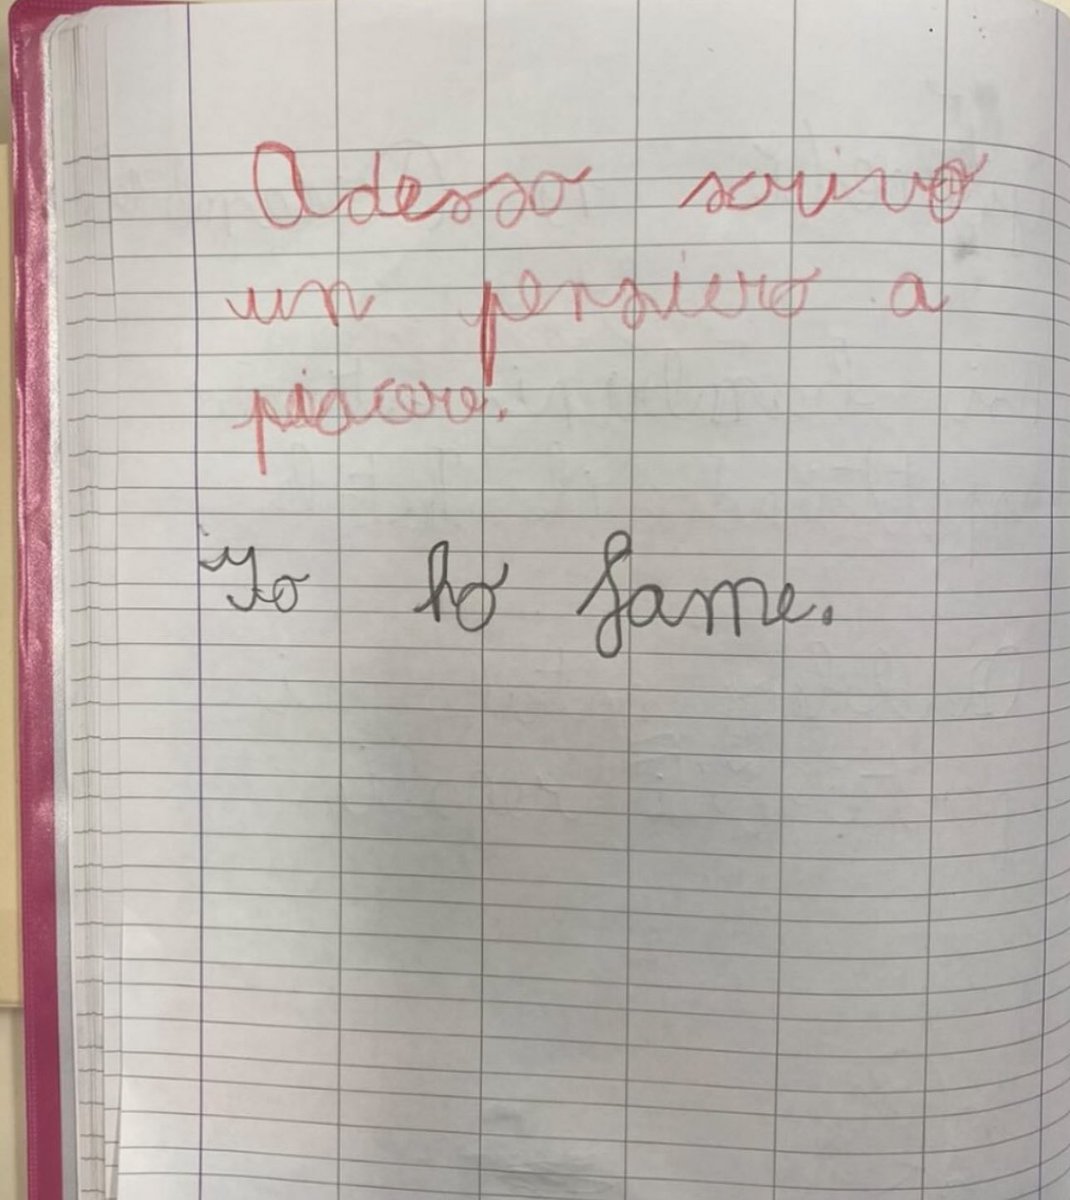 Adesso scrivo
un pensiero a
piacere.
Io ho fame.